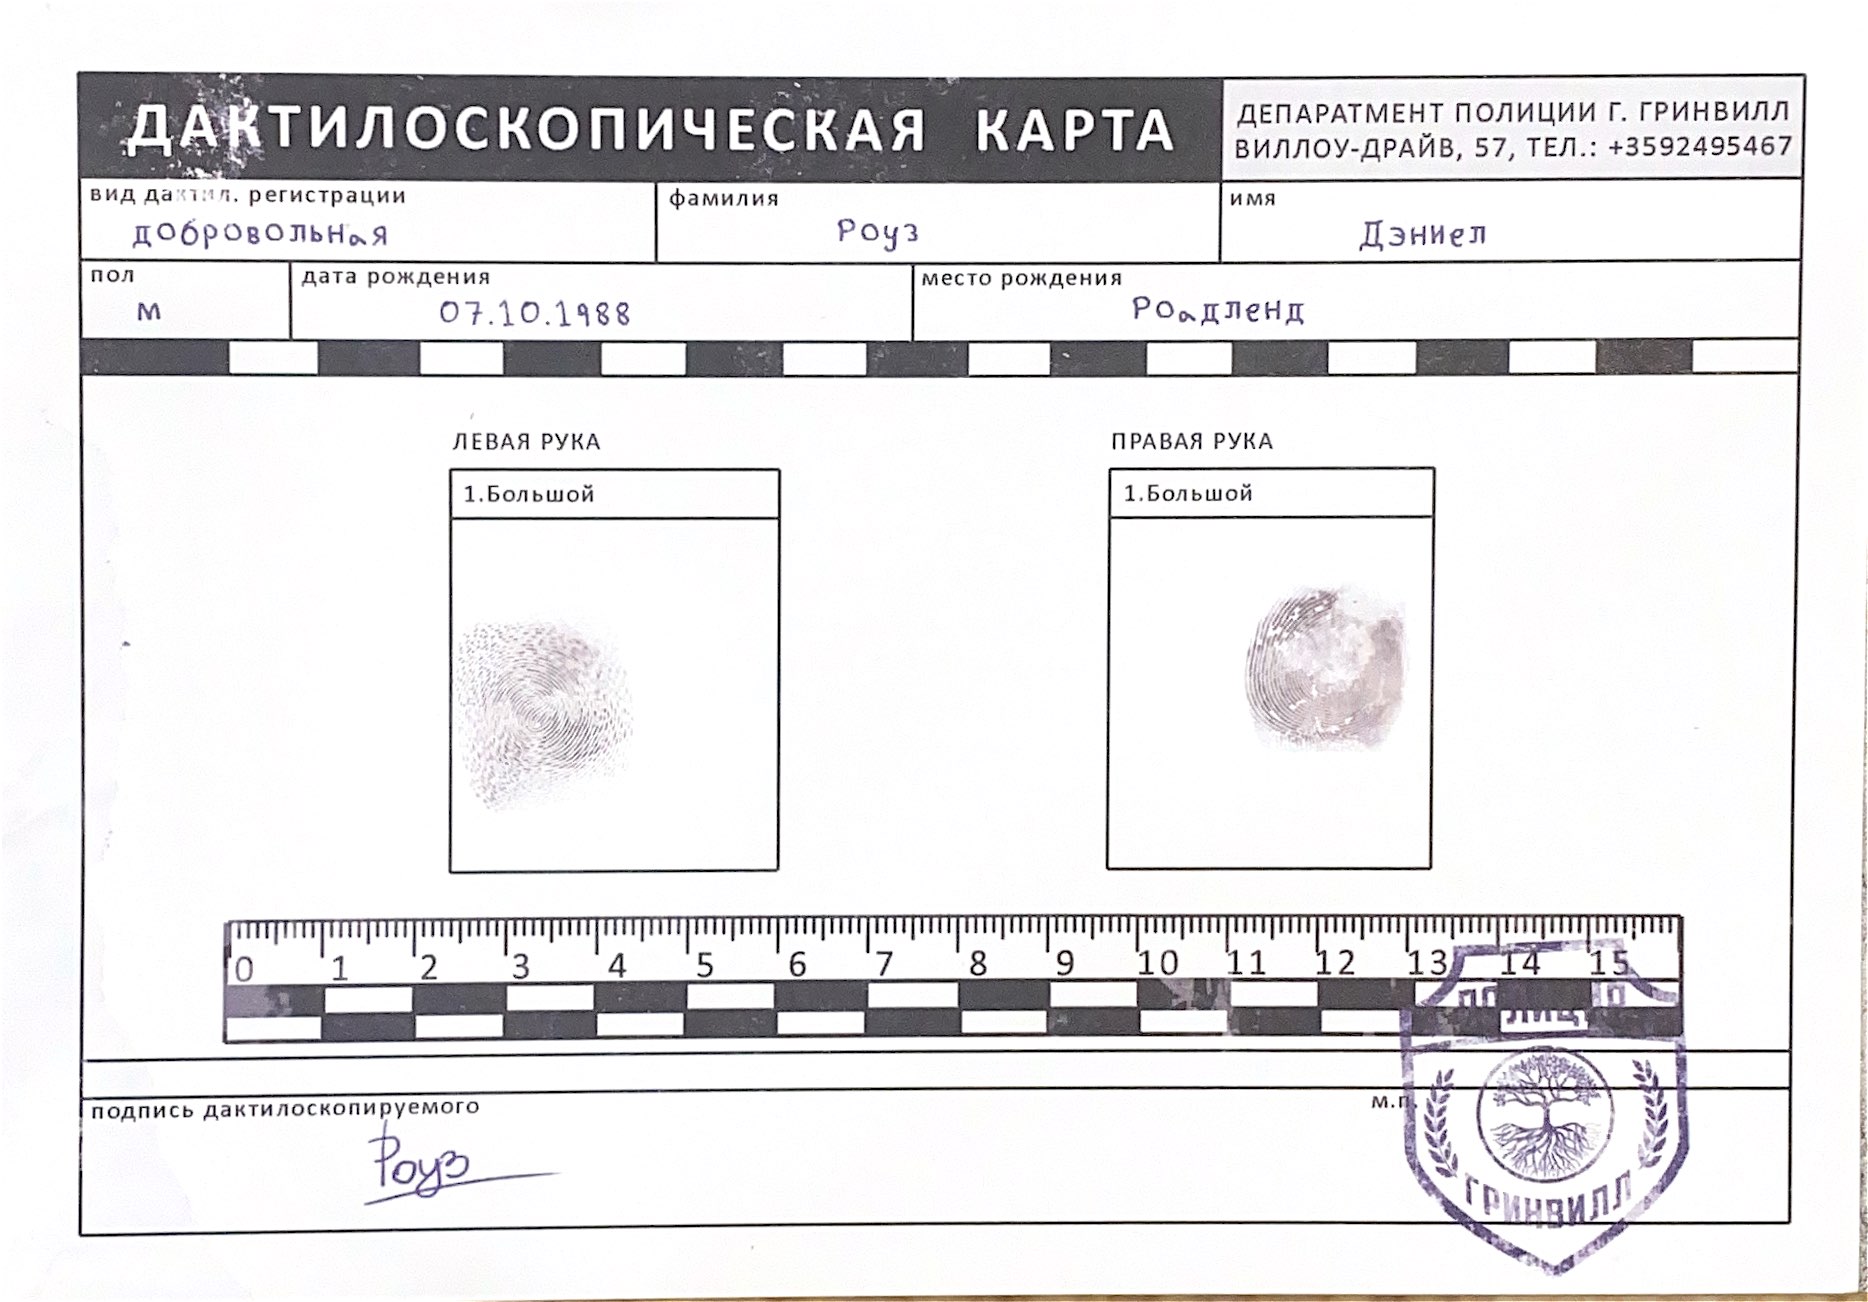 ДАКТИЛОСКОПИЧЕСКАЯ КАРТА
ДЕПАРАТМЕНТ ПОЛИЦИИ Г. ГРИНВИЛЛ
ВИЛЛОУ-ДРАЙВ, 57, ТЕЛ.: +3592495467
вид дактил. регистрации
добровольная
фамилия
Роуз
имя
Дэниел
пол
м
дата рождения
07.10.1988
место рождения
Роадленд
ЛЕВАЯ РУКА
1.Большой
ПРАВАЯ РУКА
1.Большой
0 1 2 3 4 5 6 7 8 9 10 11 12 13 14 15
ПОЛИЦИЯ
подпись дактилоскопируемого
Роуз
м.п.
ГРИНВИЛЛ